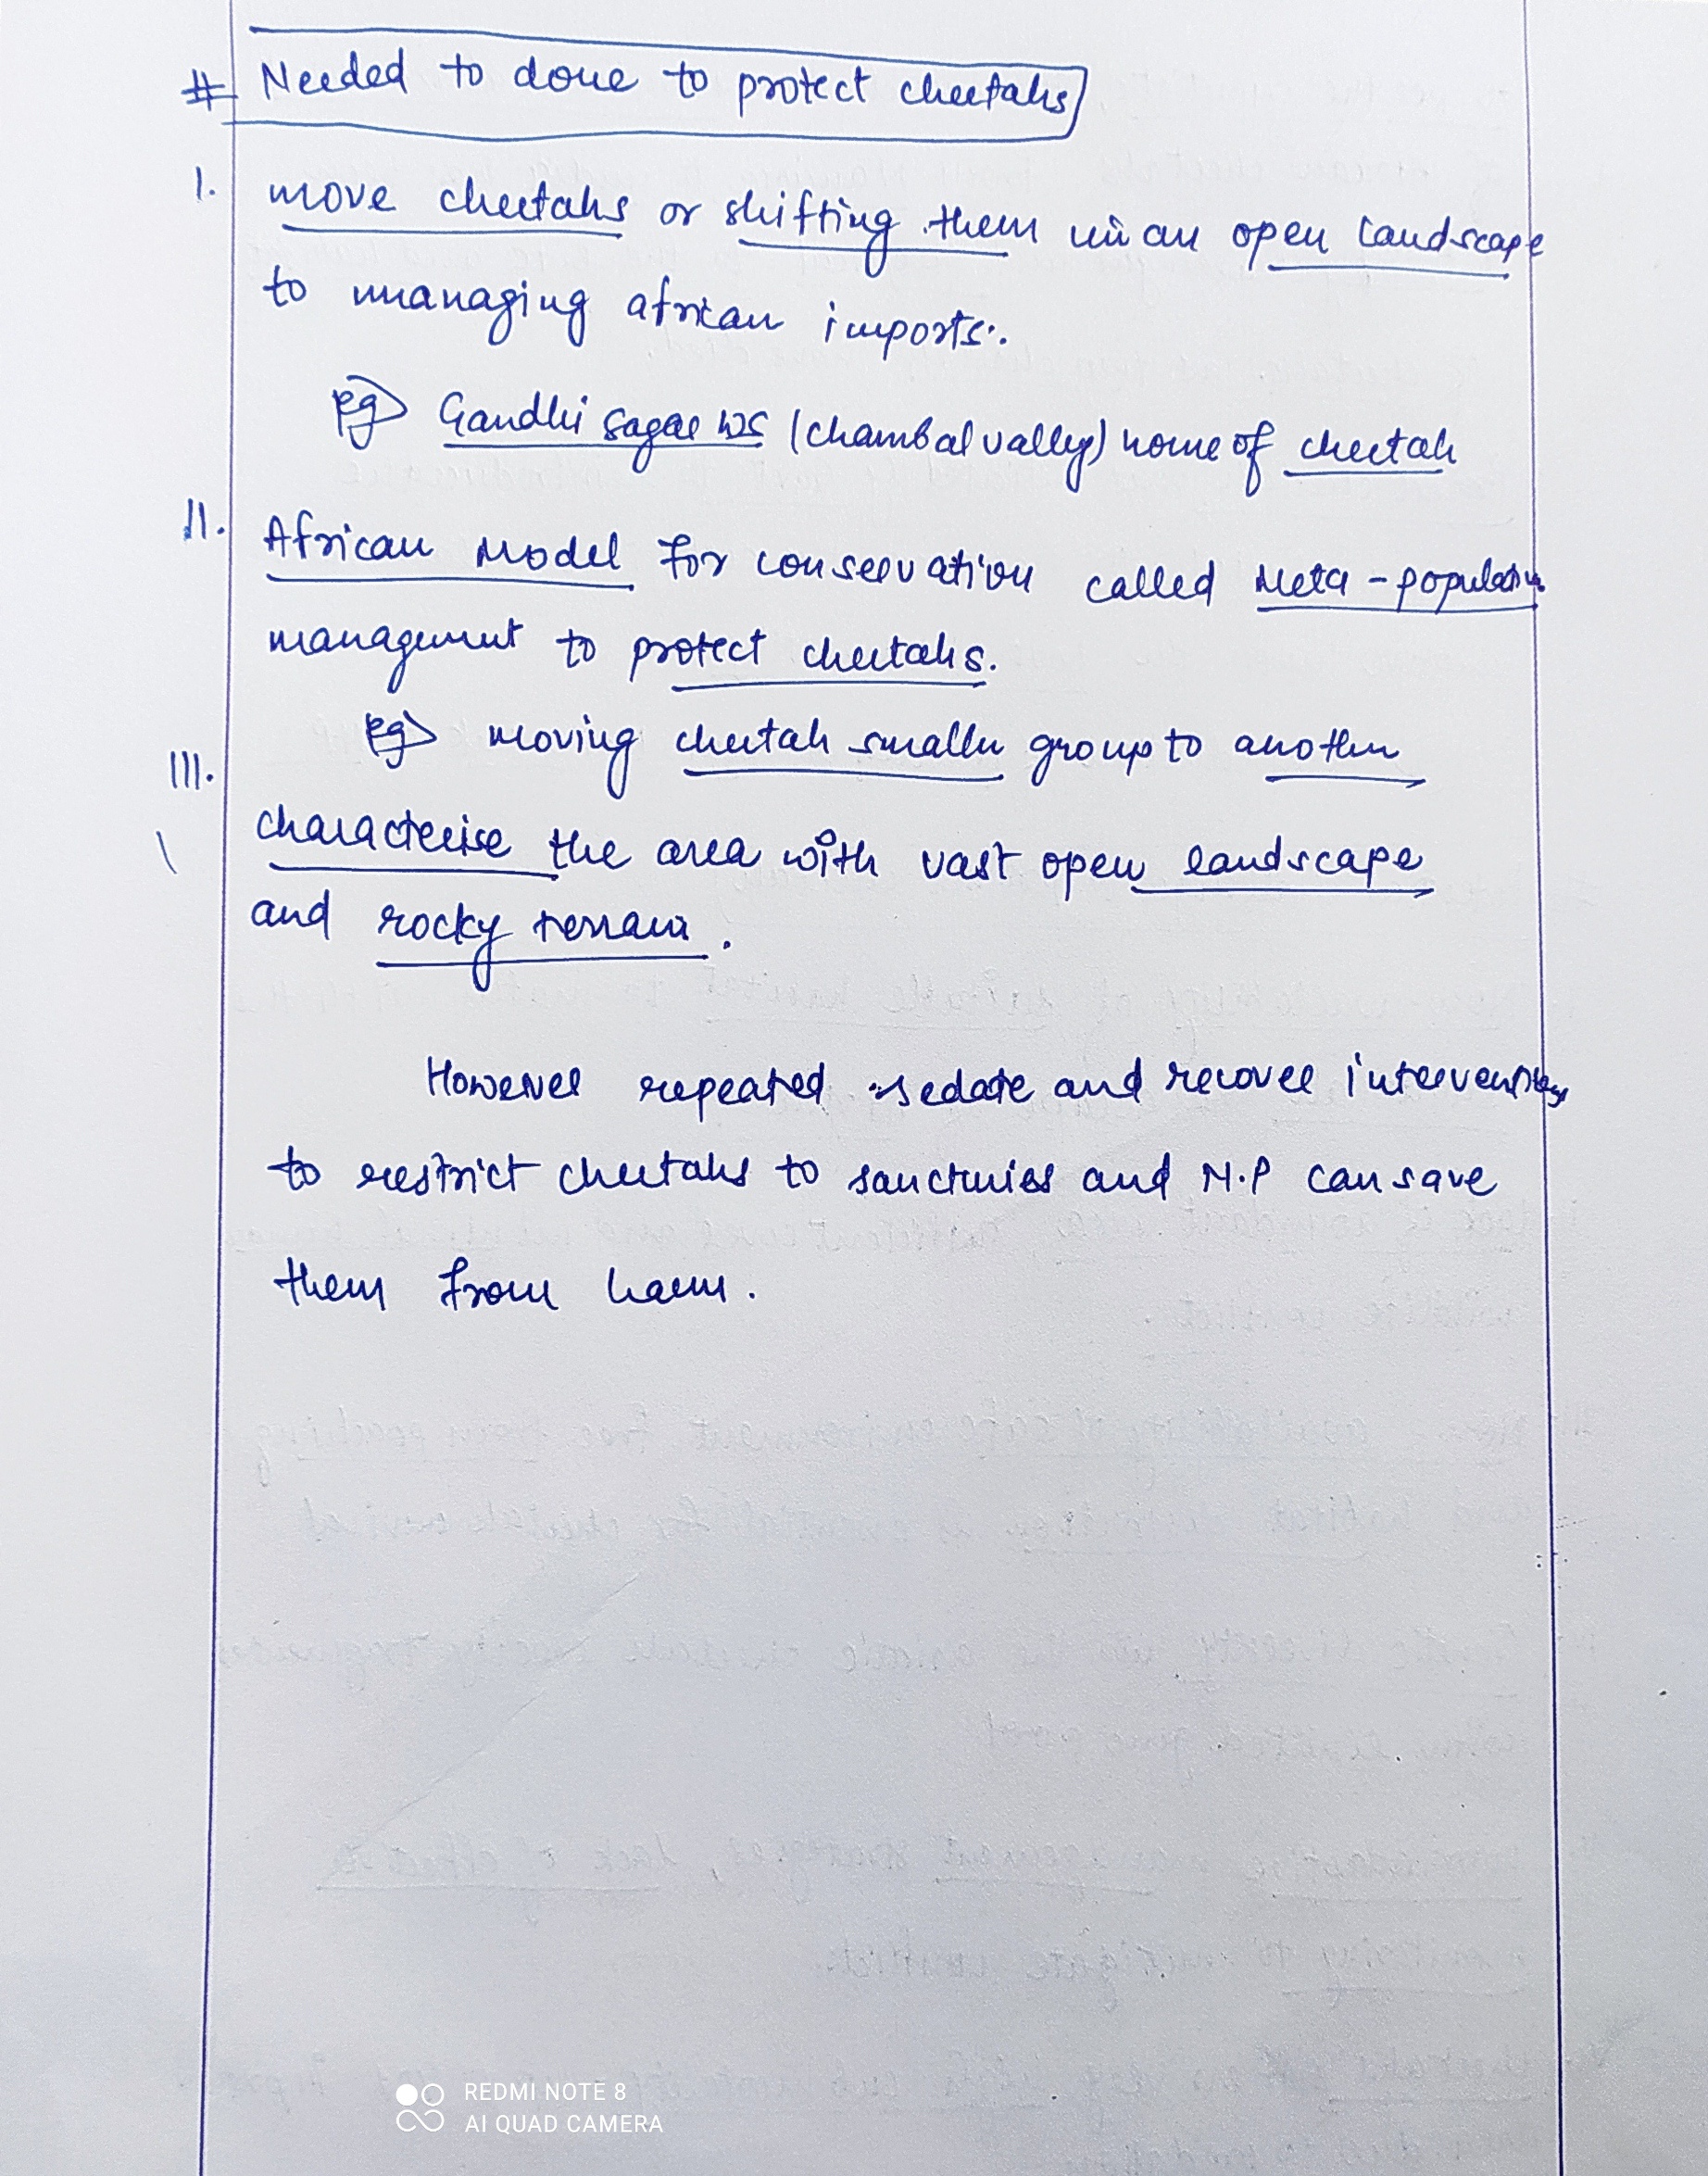 # Needed to done to protect cheetahs
I. move cheetahs or shifting them in an open landscape
to managing african imports.
eg Gandhi Sagar WS (chambal vally) home of cheetah
II. African Model for conservation called Meta-population
management to protect cheetahs.
eg moving cheetah smaller group to another
III.
characterise the area with vast open landscape
and rocky terrain.
However repeated sedate and recover interventions
to restrict cheetahs to sanctuies and N.P can save
them from harm.
REDMI NOTE 8
AI QUAD CAMERA